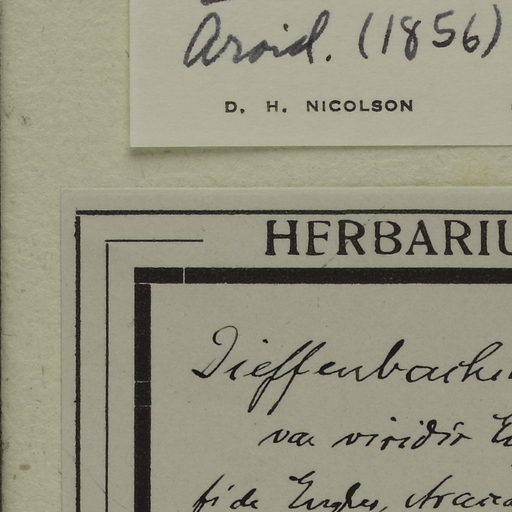 Aroid. (1856)
D. H. NICOLSON
HERBARIU
Dieffenbachi
var viridis E
fide Engler,